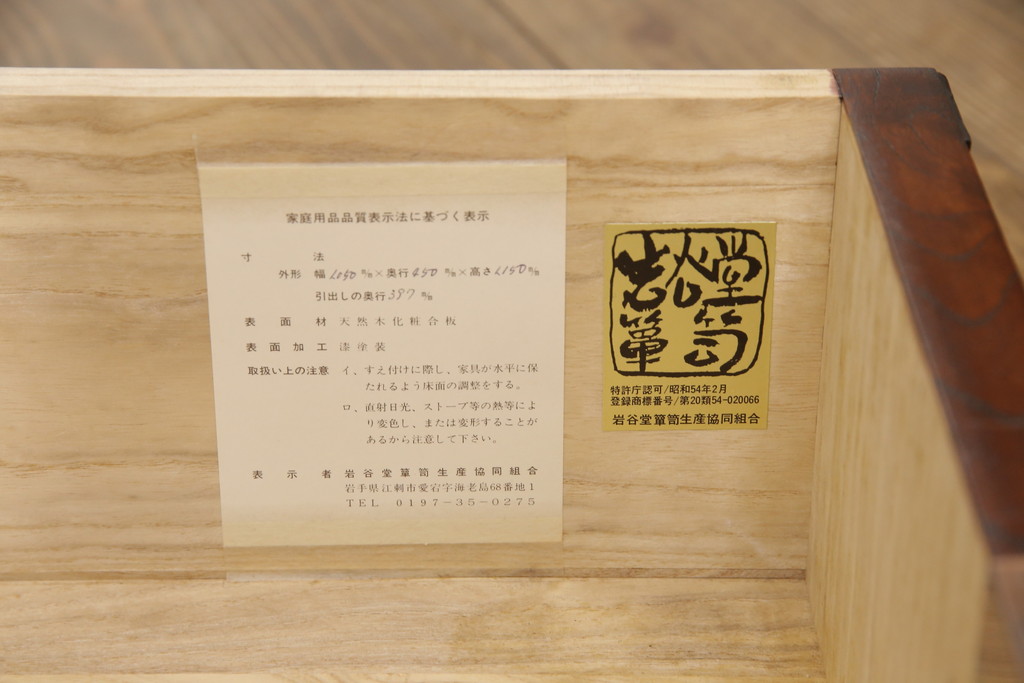 家庭用品品質表示法に基づく表示
寸法
外形 幅1050m/m×奥行450m/m×高さ1150m/m
引出しの奥行397m/m
表面材 天然木化粧合板
表面加工 漆塗装
取扱い上の注意 イ、すえ付けに際し、家具が水平に保
たれるよう床面の調整をする。
ロ、直射日光、ストーブ等の熱等によ
り変色し、または変形することが
あるから注意して下さい。
表示者 岩谷堂簞笥生産協同組合
岩手県江刺市愛宕字海老島68番地1
TEL 0197-35-0275
岩谷堂
簞笥
特許庁認可/昭和54年2月
登録商標番号/第20類54-020066
岩谷堂簞笥生産協同組合